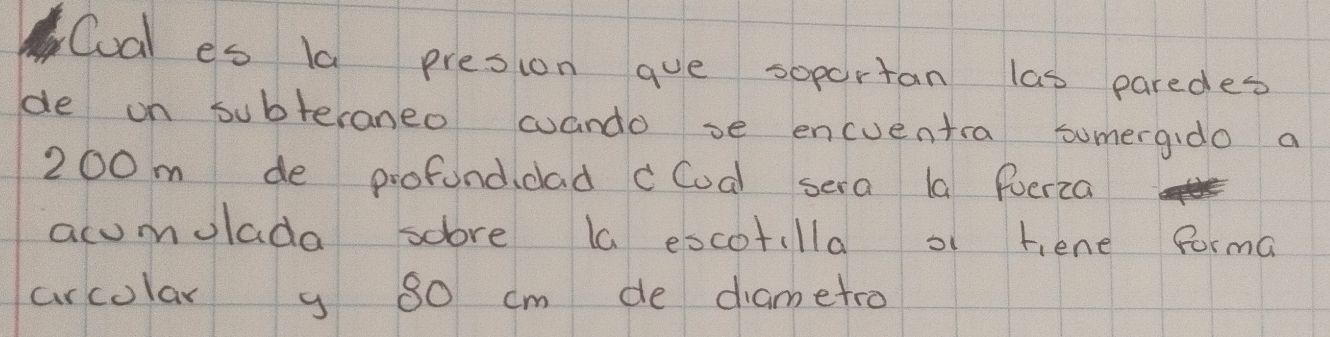 Cual es la presion que soportan las paredes
de un subteraneo cuando se encuentra sumergido a
200 m de profundidad ¿ Cual sera la fuerza
acumulada sobre la escotilla si tiene forma
circular y 80 cm de diametro